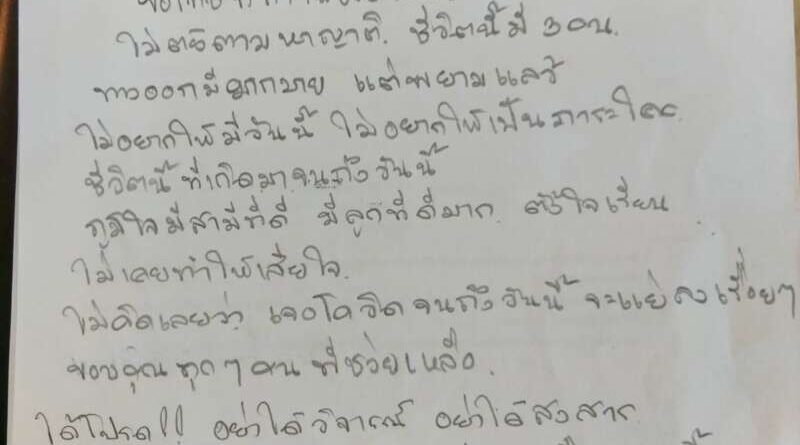 ไม่ต้องตามหาญาติ. ชีวิตนี้มี 3 คน.
ทางออกมีมากมาย แต่พยามแล้ว
ไม่อยากให้มีวันนี้ ไม่อยากให้เป็นภาระใคร.
ชีวิตนี้ที่เกิดมาจนถึงวันนี้
ภูมิใจมีสามีที่ดี มีลูกที่ดีมาก ตั้งใจเรียน
ไม่เคยทำให้เสียใจ.
ไม่คิดเลยว่า เจอโควิดจนถึงวันนี้ จะแย่ลงเรื่อยๆ
ขอบคุณทุกๆคนที่ช่วยเหลือ.
ได้โปรด!! อย่าได้วิจารณ์ อย่าได้สงสาร